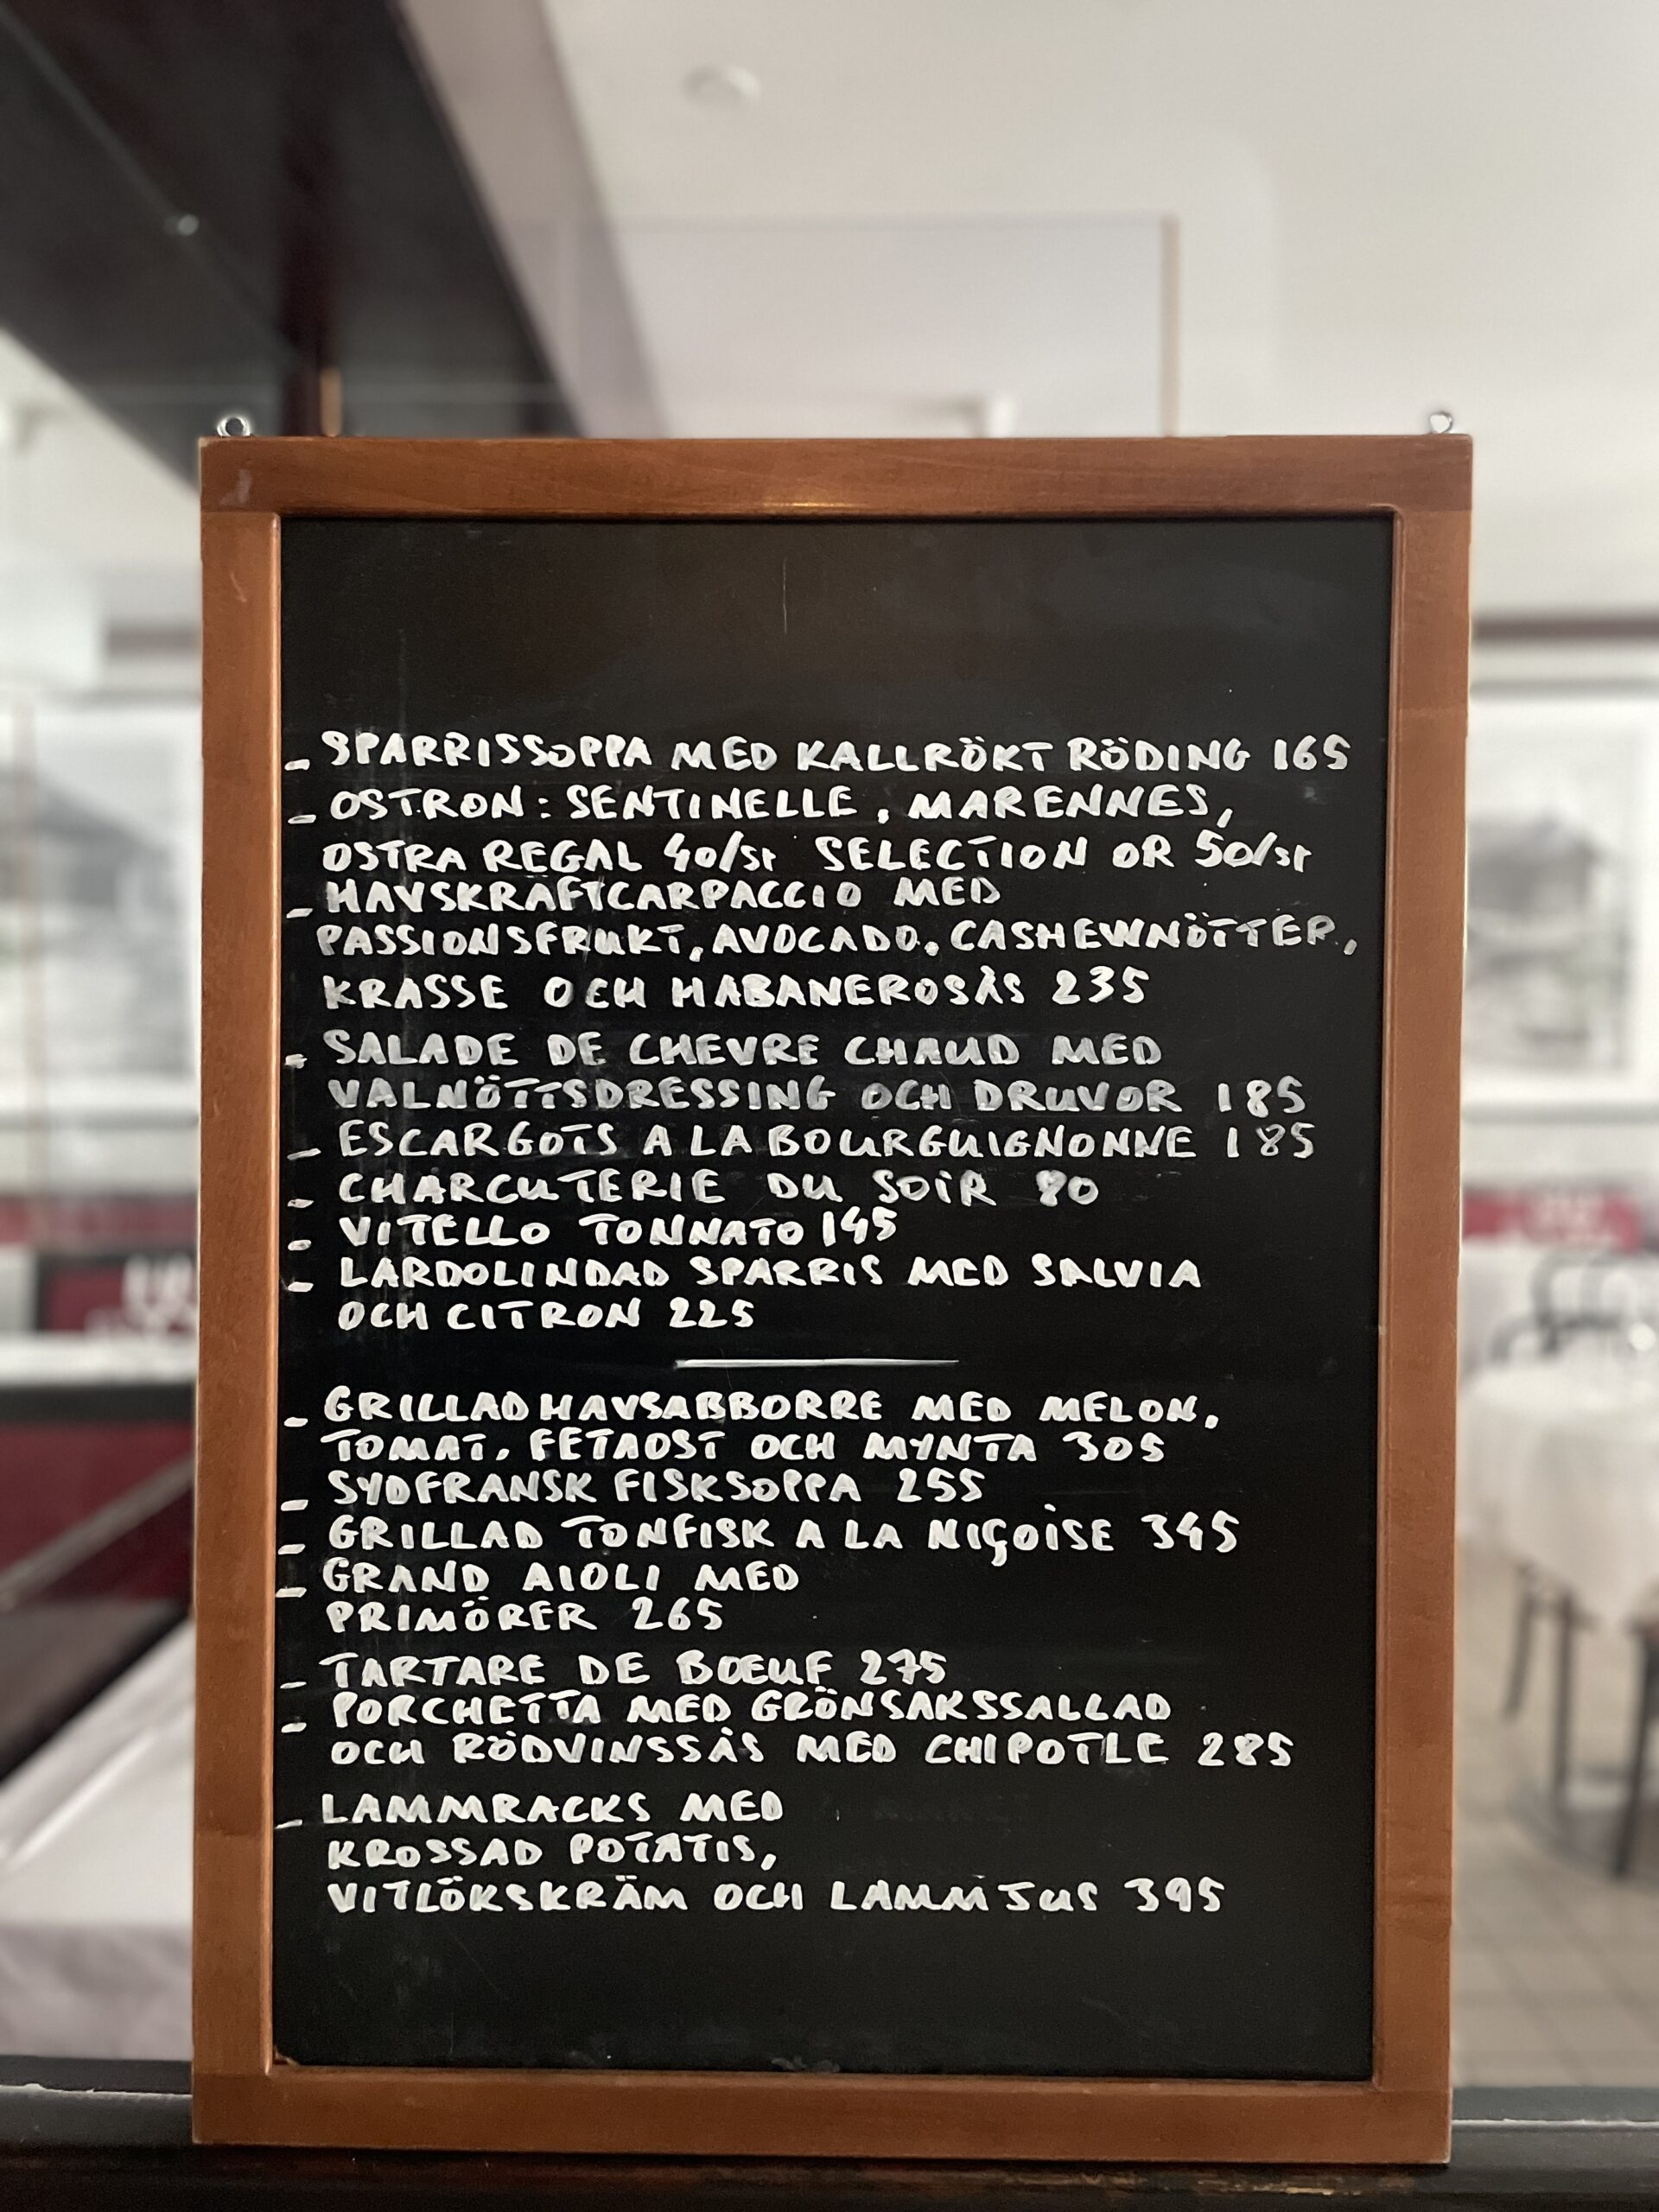 - SPARRISSOPPA MED KALLRÖKT RÖDING 165
- OSTRON: SENTINELLE, MARENNES,
OSTRA REGAL 40/ST SELECTION OR 50/ST
- HAVSKRÄFTCARPACCIO MED
PASSIONSFRUKT, AVOCADO, CASHEWNÖTTER,
KRASSE OCH HABANEROSÅS 235
- SALADE DE CHEVRE CHAUD MED
VALNÖTTSDRESSING OCH DRUVOR 185
- ESCARGOTS A LA BOURGUIGNONNE 185
- CHARCUTERIE DU SOIR 90
- VITELLO TONNATO 145
- LARDOLINDAD SPARRIS MED SALVIA
OCH CITRON 225
- GRILLAD HAVSABBORRE MED MELON,
TOMAT, FETAOST OCH MYNTA 305
- SYDFRANSK FISKSOPPA 255
- GRILLAD TONFISK A LA NIÇOISE 345
- GRAND AIOLI MED
PRIMÖRER 265
- TARTARE DE BŒUF 275
- PORCHETTA MED GRÖNSAKSSALLAD
OCH RÖDVINSSÅS MED CHIPOTLE 285
- LAMMRACKS MED
KROSSAD POTATIS,
VITLÖKSKRÄM OCH LAMMJUS 395